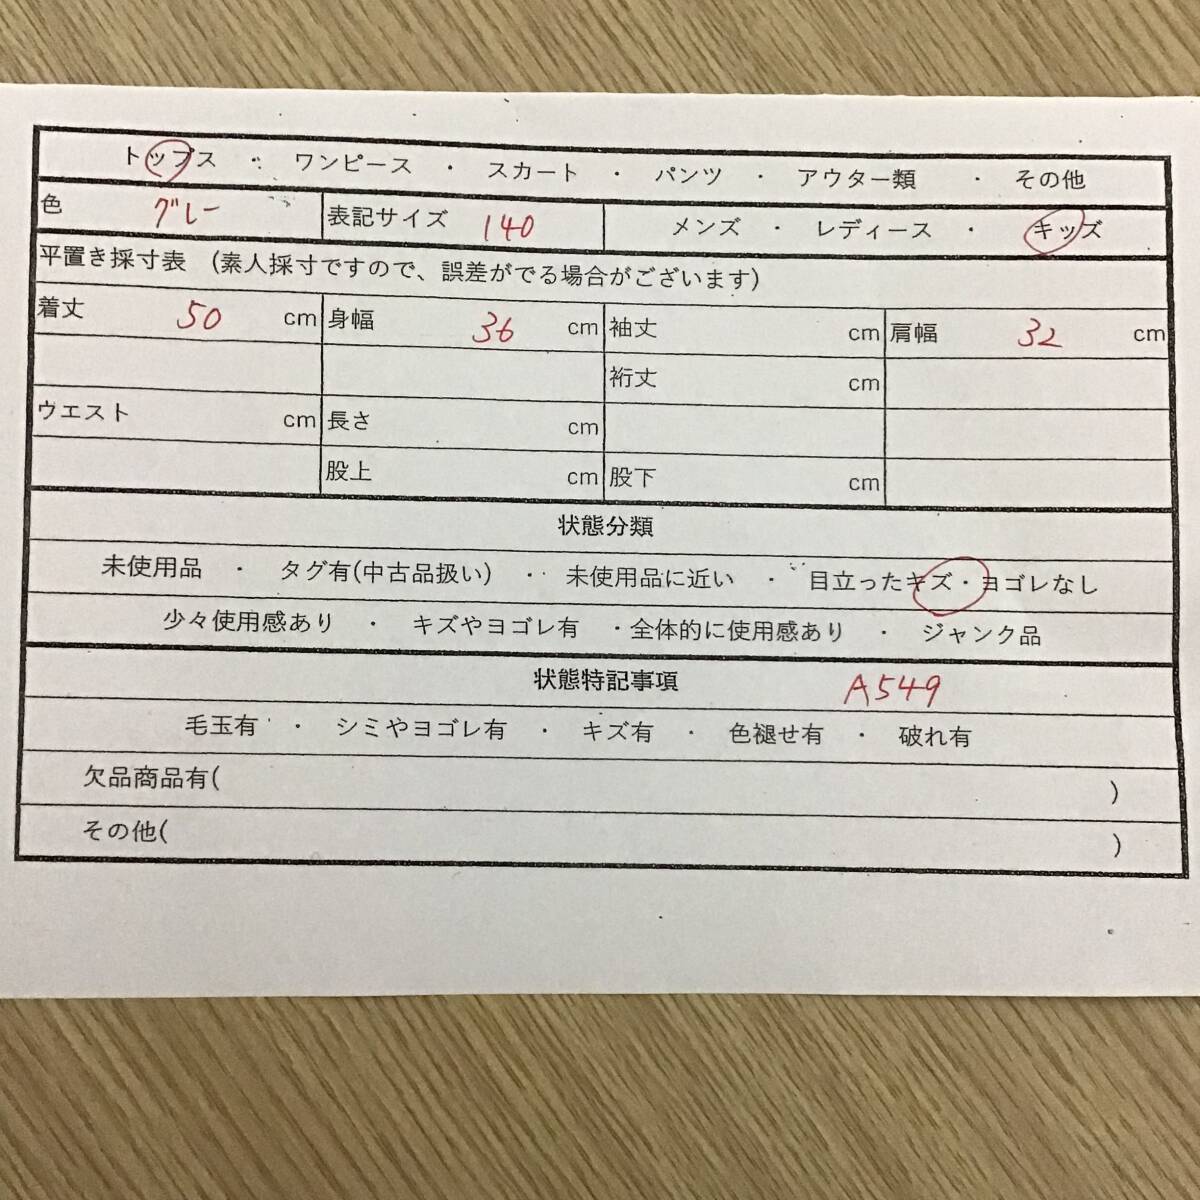 トップス ・ ワンピース ・ スカート ・ パンツ ・ アウター類 ・ その他
色 グレー 表記サイズ 140 メンズ ・ レディース ・ キッズ
平置き採寸表 (素人採寸ですので、誤差がでる場合がございます)
着丈 50 cm 身幅 36 cm 袖丈 cm 肩幅 32 cm
裄丈 cm
ウエスト cm 長さ cm
股上 cm 股下 cm
状態分類
未使用品 ・ タグ有(中古品扱い) ・ 未使用品に近い ・ 目立ったキズ・ヨゴレなし
少々使用感あり ・ キズやヨゴレ有 ・全体的に使用感あり ・ ジャンク品
状態特記事項 A549
毛玉有 ・ シミやヨゴレ有 ・ キズ有 ・ 色褪せ有 ・ 破れ有
欠品商品有( )
その他( )